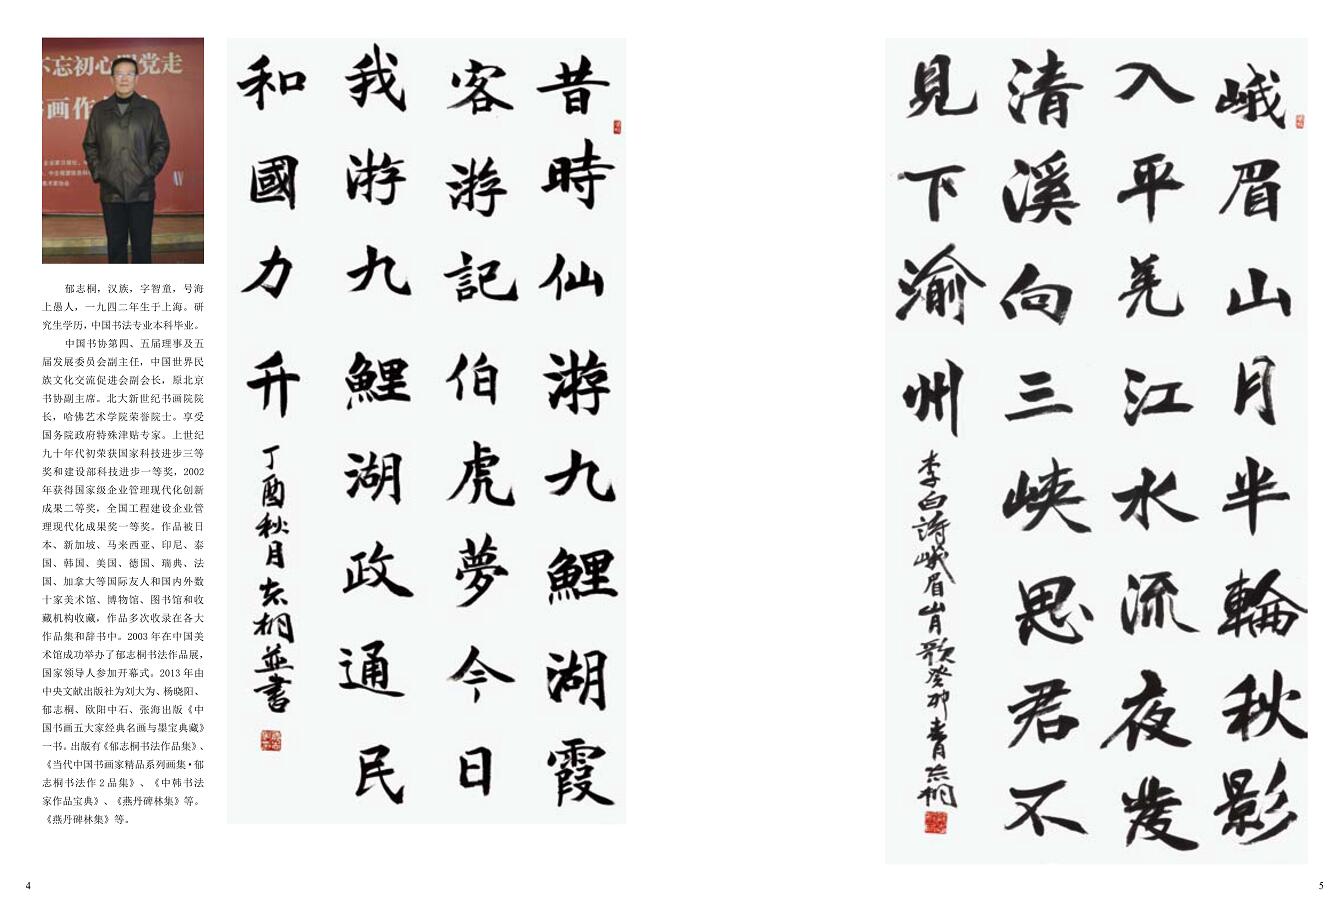 不忘初心跟党走
郁志桐，汉族，字智童，号海
上愚人，一九四二年生于上海。研
究生学历，中国书法专业本科毕业。
中国书协第四、五届理事及五
届发展委员会副主任，中国世界民
族文化交流促进会副会长，原北京
书协副主席。北大新世纪书画院院
长，哈佛艺术学院荣誉院士。享受
国务院政府特殊津贴专家。上世纪
九十年代初荣获国家科技进步三等
奖和建设部科技进步一等奖，2002
年获得国家级企业管理现代化创新
成果二等奖，全国工程建设企业管
理现代化成果奖一等奖。作品被日
本、新加坡、马来西亚、印尼、泰
国、韩国、美国、德国、瑞典、法
国、加拿大等国际友人和国内外数
十家美术馆、博物馆、图书馆和收
藏机构收藏，作品多次收录在各大
作品集和辞书中。2003年在中国美
术馆成功举办了郁志桐书法作品展，
国家领导人参加开幕式。2013年由
中央文献出版社为刘大为、杨晓阳、
郁志桐、欧阳中石、张海出版《中
国书画五大家经典名画与墨宝典藏》
一书。出版有《郁志桐书法作品集》、
《当代中国书画家精品系列画集·郁
志桐书法作2品集》、《中韩书法
家作品宝典》、《燕丹碑林集》等。
《燕丹碑林集》等。
昔時仙游九鯉湖霞
客游記伯虎夢今日
我游九鯉湖政通民
和國力升
丁酉秋月志桐並書
峨眉山月半輪秋影
入平羌江水流夜發
清溪向三峽思君不
見下渝州
李白詩峨眉山月歌癸卯春月志桐
4
5